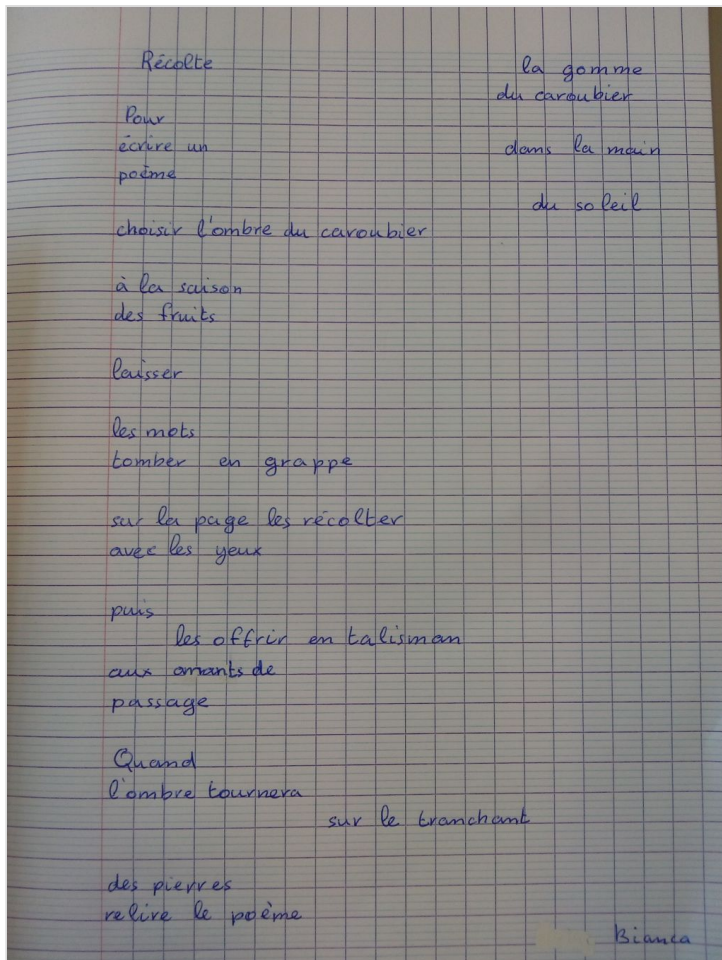 Récolte
Pour
écrire un
poème
choisir l'ombre du caroubier
à la saison
des fruits
laisser
les mots
tomber en grappe
sur la page les récolter
avec les yeux
puis
les offrir en talisman
aux amants de
passage
Quand
l'ombre tournera
sur le tranchant
des pierres
relire le poème
la gomme
du caroubier
dans la main
du soleil
Bianca